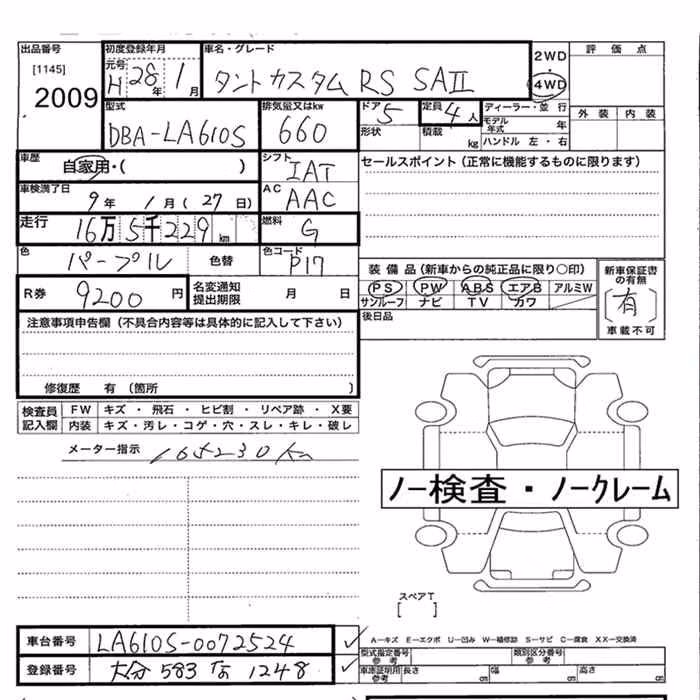 出品番号 [1145] 2009
初度登録年月 元号 H 28年 1月
車名・グレード タントカスタム RS SAII
2WD 4WD
評価点
外装 内装
型式 DBA-LA610S
排気量又はkw 660
ドア 5
形状
定員 4人
積載 kg
ディーラー・並行
モデル年式 年
ハンドル 左・右
車歴 自家用・( )
シフト IAT
セールスポイント(正常に機能するものに限ります)
車検満了日 9年 1月(27日)
AC AAC
走行 16万5千229km
燃料 G
色 パープル 色替
色コード P17
装備品(新車からの純正品に限り○印)
PS PW ABS エアB アルミW
サンルーフ ナビ TV カワ
新車保証書の有無
[有]
車載不可
R券 9200円
名変通知提出期限 月 日
後日品
注意事項申告欄(不具合内容等は具体的に記入して下さい)
修復歴 有(箇所 )
検査員記入欄
FW キズ・飛石・ヒビ割・リペア跡・X要
内装 キズ・汚レ・コゲ・穴・スレ・キレ・破レ
メーター指示 165230km
ノー検査・ノークレーム
スペアT
[ ]
車台番号 LA610S-0072524
A−キズ E−エクボ U−凹み W−補修跡 S−サビ C−腐食 XX−交換済
型式指定番号 参考
類別区分番号 参考
登録番号 大分 583 な 1248
車庫証明用 参考 長さ cm 幅 cm 高さ cm